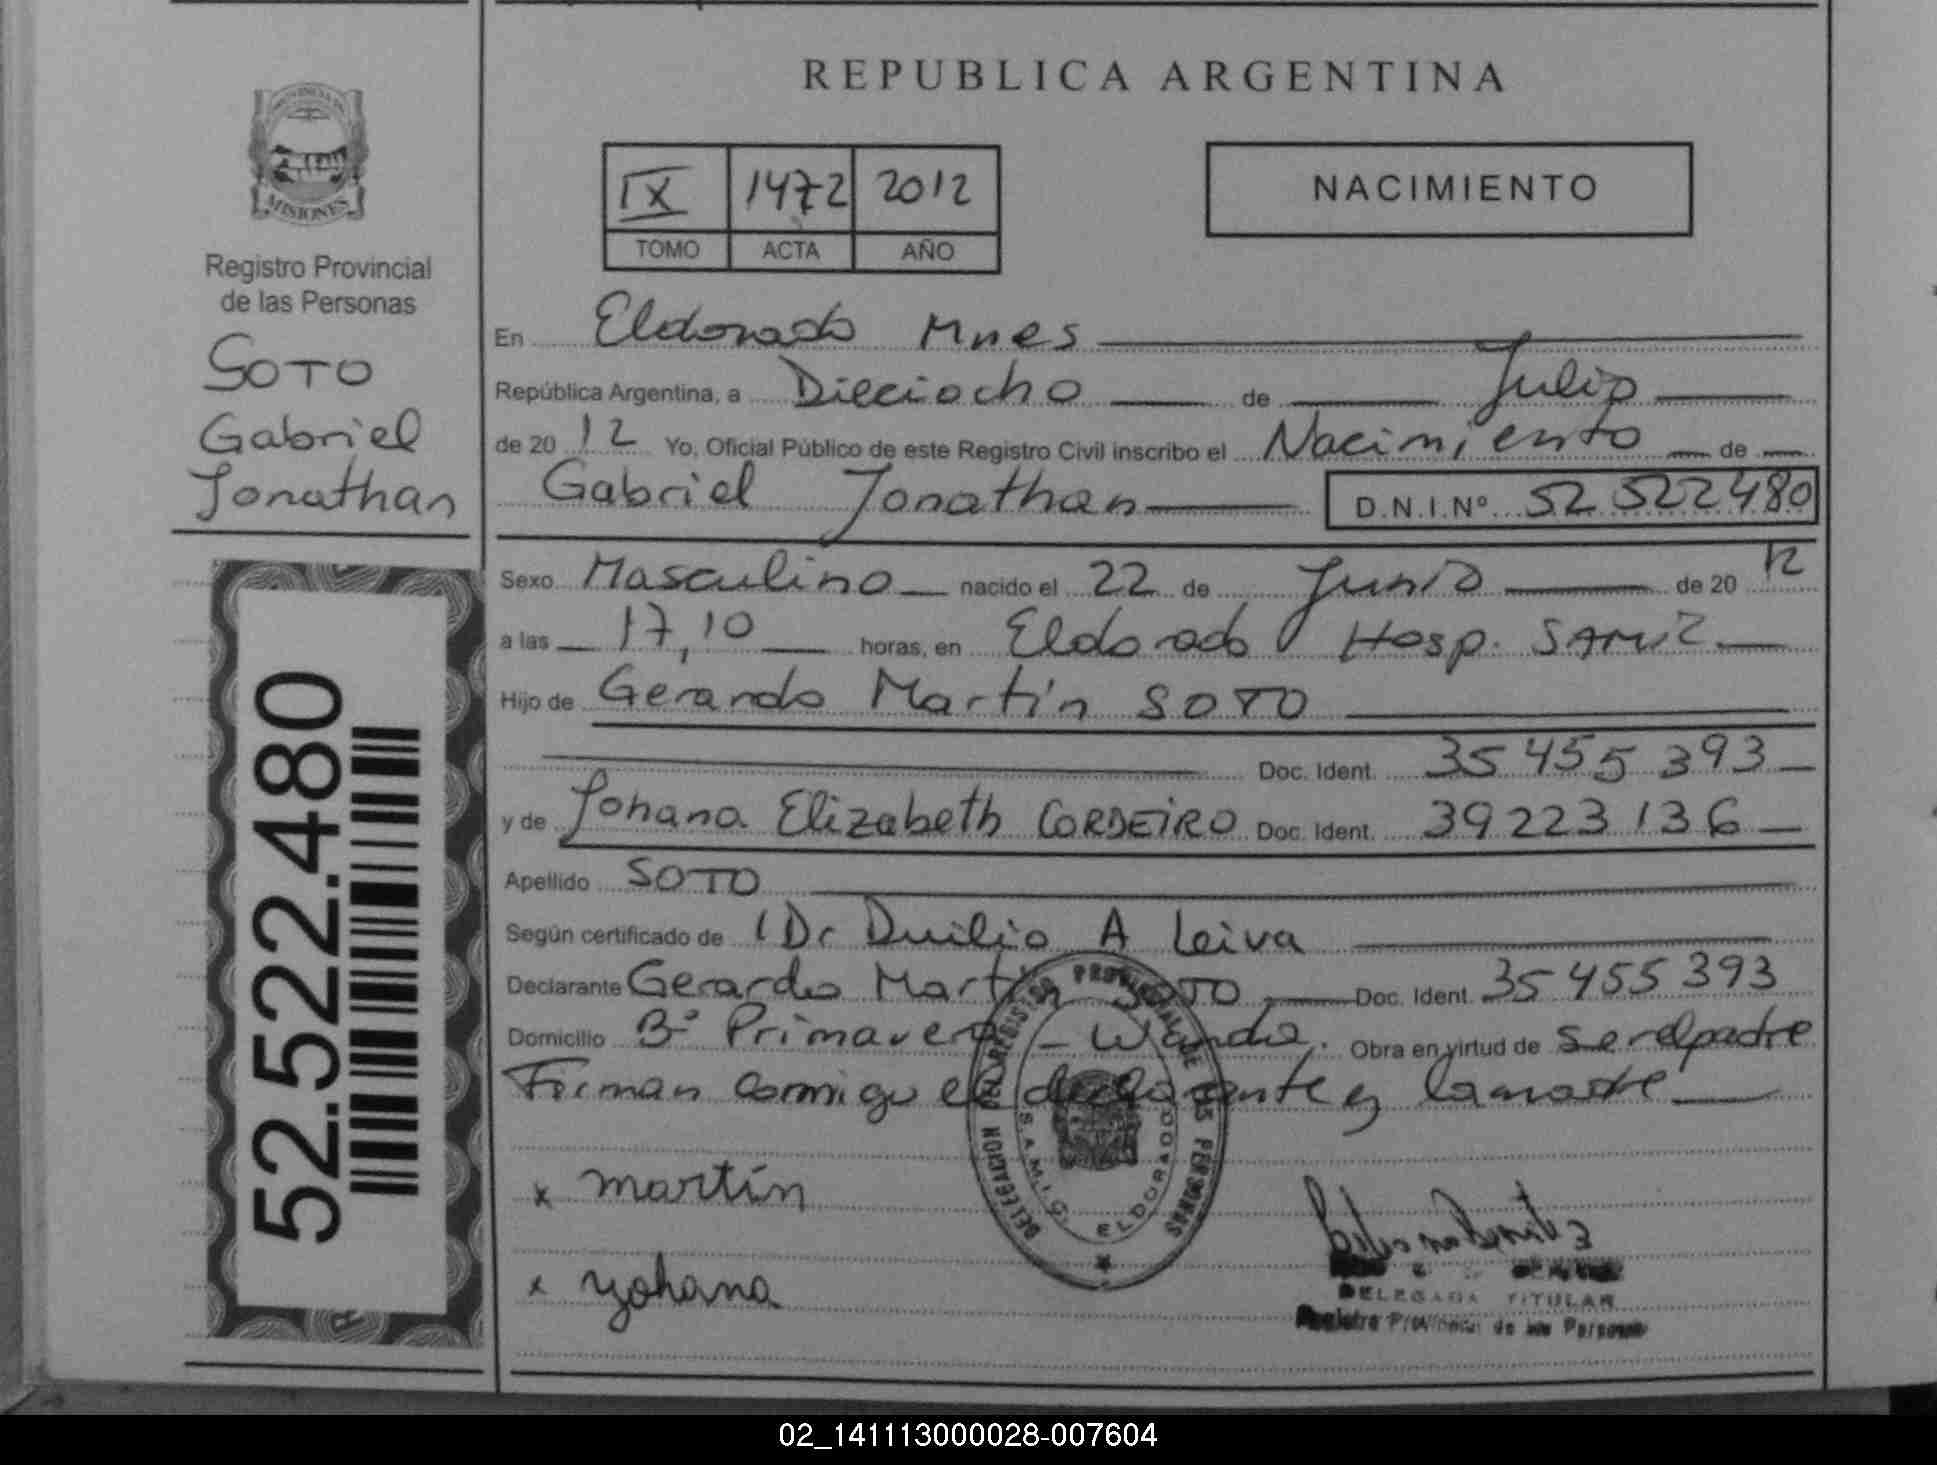 REPUBLICA ARGENTINA
PROVINCIA DE
MISIONES
Registro Provincial
de las Personas
SOTO
Gabriel
Jonathan
52.522.480
IX 1472 2012
TOMO ACTA AÑO
NACIMIENTO
En Eldorado Mnes
República Argentina, a Dieciocho de Julio
de 20 12 Yo, Oficial Público de este Registro Civil inscribo el Nacimiento de
Gabriel Jonathan D.N.I.Nº 52 522480
Sexo Masculino nacido el 22 de Junio de 20 12
a las 17,10 horas, en Eldorado Hosp. SAMIC
Hijo de Gerardo Martín SOTO
Doc. Ident. 35 455 393
y de Johana Elizabeth CORDEIRO Doc. Ident. 39223136
Apellido SOTO
Según certificado de Dr Duilio A Leiva
Declarante Gerardo Martín SOTO Doc. Ident. 35 455 393
Domicilio Bº Primavera - Wanda. Obra en virtud de ser el padre
Firman conmigo el declarante y la madre
DELEGACION DEL REGISTRO PROVINCIAL DE LAS PERSONAS
S.A.M.I.C. ELDORADO
x martín
x yohana
DELEGADA TITULAR
Registro Provincial de las Personas
02_141113000028-007604